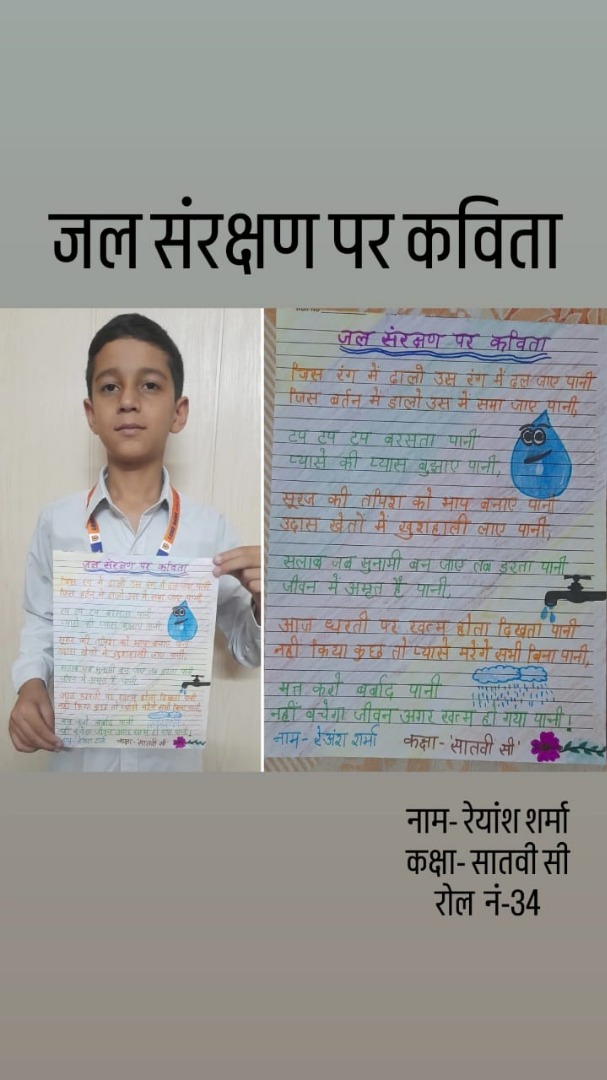 जल संरक्षण पर कविता
जल संरक्षण पर कविता
जिस रंग में ढालो उस रंग में ढल जाए पानी
जिस बर्तन में डालो उस में समा जाए पानी,
टप टप टप बरसता पानी
प्यासे की प्यास बुझाए पानी,
सूरज की तपिश को भाप बनाए पानी
उदास खेतो में खुशहाली लाए पानी,
सलाब जब सुनामी बन जाए तब डरता पानी
जीवन में अमृत है पानी,
आज धरती पर खत्म होता दिखता पानी
नही किया कुछ तो प्यासे मरेंगे सभी बिना पानी,
मत करो बर्बाद पानी
नहीं बचेगा जीवन अगर खत्म हो गया पानी!
नाम- रेअंश शर्मा कक्षा- 'सातवी सी'
नाम- रेयांश शर्मा
कक्षा- सातवी सी
रोल नं-34